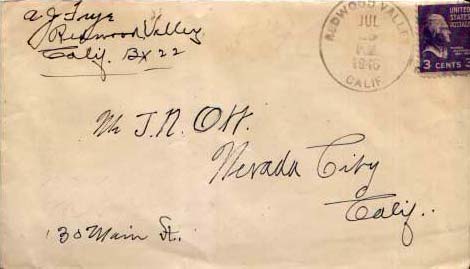 A. J. Frye
Redwood Valley
Calif. Bx 22
REDWOOD VALLEY
JUL
P.M.
1946
CALIF
UNITED STATES POSTAGE
3 CENTS 3
Mr J. N. Ott.
Nevada City
Calif.
130 Main St.